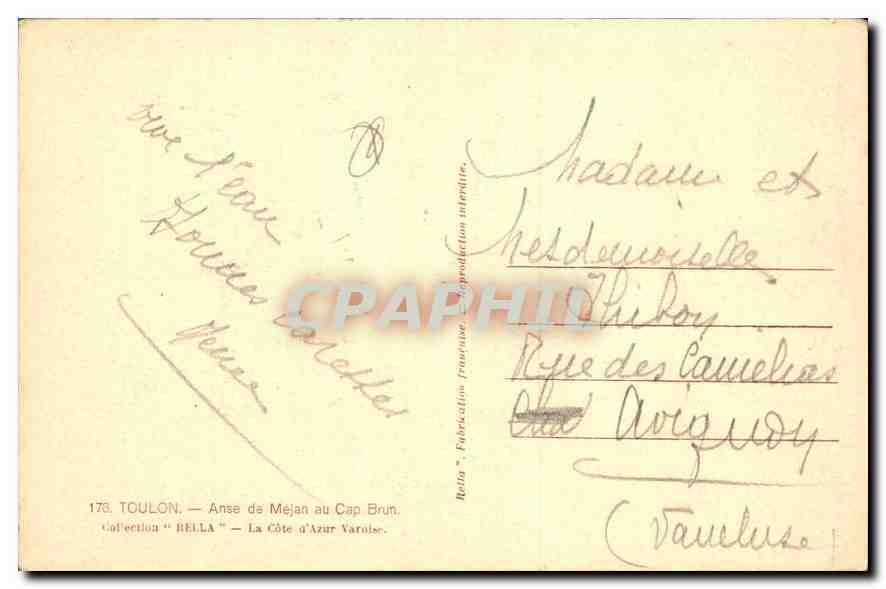 vive l'eau
Bonnes
Madame et
Mesdemoiselle
Thiboy
Rue des Camelias
Avignon
(Vaucluse)
178. TOULON. — Anse de Méjan au Cap Brun.
Collection " RELLA " — La Côte d'Azur Varoise.
Rella ". Fabrication française. — Reproduction interdite.
CPAPHIL